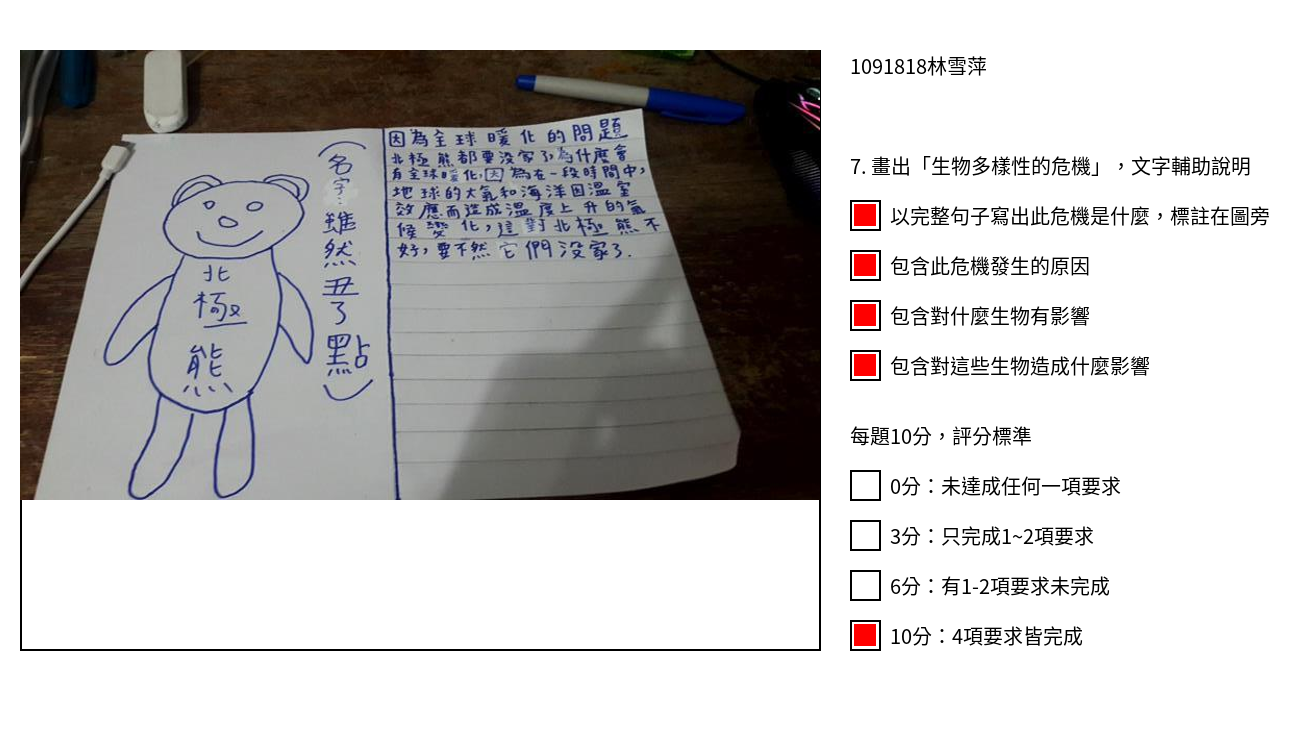 北
極
熊
(名字:雖然丑了點)
因為全球暖化的問題
北極熊都要沒家了,為什麼會
有全球暖化,因為在一段時間中,
地球的大氣和海洋因溫室
效應而造成溫度上升的氣
候變化,這對北極熊不
好,要不然它們沒家了.
1091818林雪萍
7. 畫出「生物多樣性的危機」,文字輔助說明
以完整句子寫出此危機是什麼,標註在圖旁
包含此危機發生的原因
包含對什麼生物有影響
包含對這些生物造成什麼影響
每題10分,評分標準
0分:未達成任何一項要求
3分:只完成1~2項要求
6分:有1-2項要求未完成
10分:4項要求皆完成